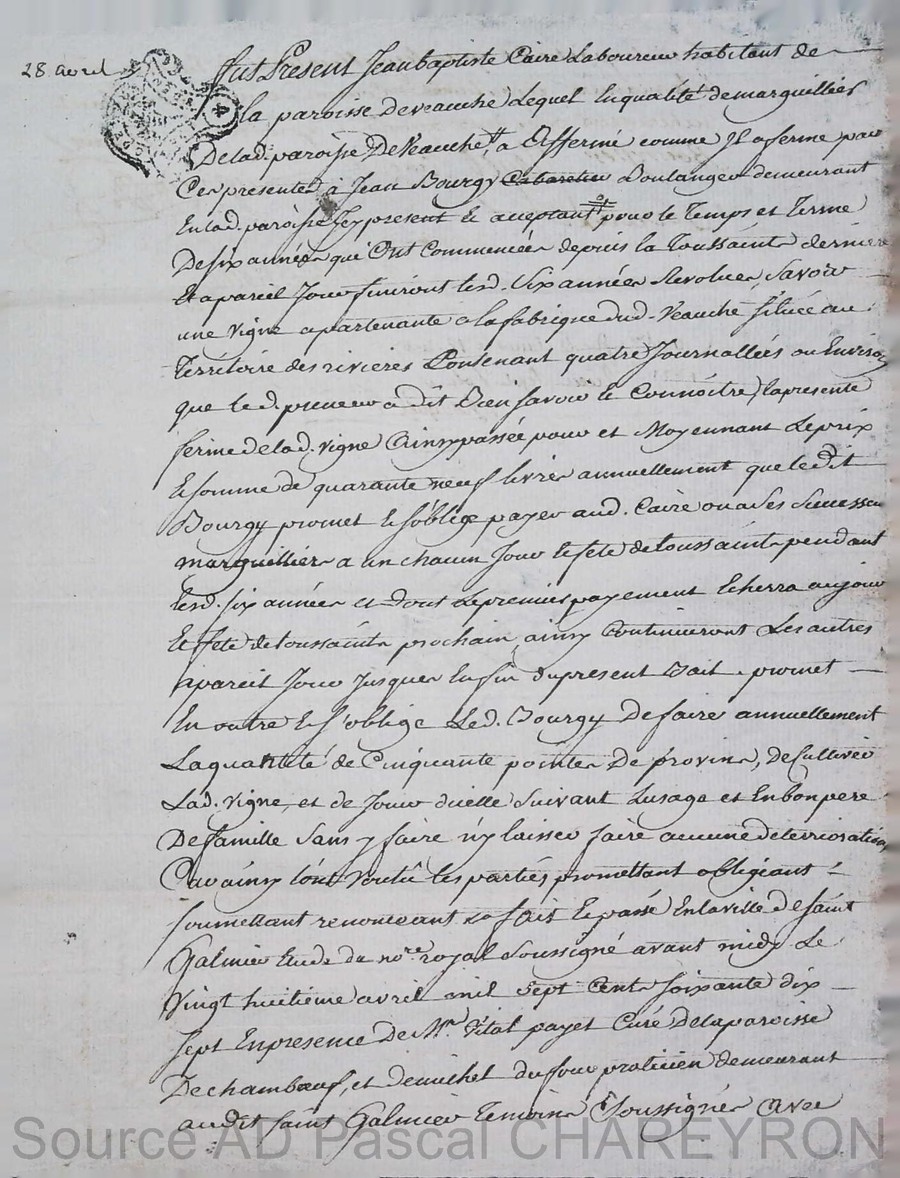 28 avril
fut Present Jean baptiste Caire Laboureur habitant de
la paroisse de veauche Lequel En qualité de marguillier
De lad. paroisse De Veauche, a Affermé comme Il aferme par
Ces presentes à Jean Bourgy Cabaretier Boulanger demeurant
En lad. paroisse Icy present et aceptant pour le Temps et Terme
De six années qui Ont Commencées depuis la Toussaints derniere
Et a pareil Jour finiront lesd. Six années Revolues, Savoir
une vigne apartenante a la fabrique dud. Veauche située au
Territoire des rivieres Contenant quatre Journallées ou Environ
que led. preneur a dit Bien savoir et Connoitre, la presente
ferme de lad. vigne Ainsy passée pour et Moyennant Le prix
Et somme de quarante neuf livres annuellement que le dit
Bourgy promet Et s'oblige payer aud. Caire ou a ses Successeurs
marguilliers a un chacun Jour et fete de toussaints pendant
lesd. six années et dont Le premier payement Echerra au jour
Et fete de toussaints prochain, ainsy Continueront Les autres
a pareil Jour Jusques En fin du present Bail. promet
En outre Et s'oblige Led. Bourgy De faire annuellement
La quantité de Cinquante pointes De provins, de Cultiver
Lad. vigne, et de Jouir d'icelle suivant Lusage et En bon pere
De famille sans y faire n'y laisser faire aucune deterrioration
Car ainsy l'ont Voulu les parties promettant obligeant
soumettant renonceant &a fait Et passé En la ville de saint
Galmier Etude du nore. royal Soussigné avant midy Le
Vingt huitieme avril mil sept Cents soixante dix
sept En presence de Mre Vital payet Curé De la paroisse
De chambœuf, et de michel dufour praticien demeurant
au dit saint Galmier Temoins Soussignés Avec
Source AD Pascal CHAREYRON